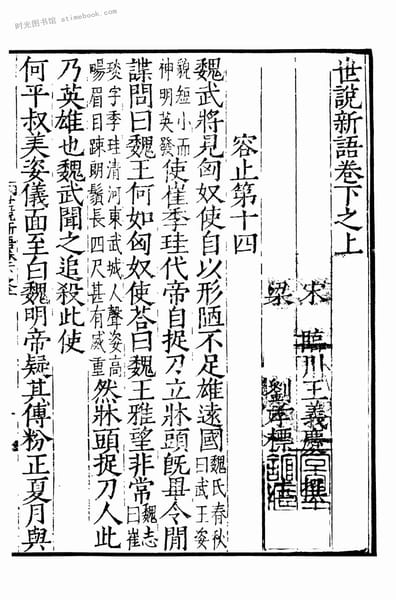 时光图书馆 · atimebook.com
世說新語卷下之上
宋 臨川王義慶 撰
梁 劉孝標 注
容止第十四
魏武將見匈奴使自以形陋不足雄遠國魏氏春秋曰武王姿
貌短小而神明英發使崔季珪代帝自捉刀立牀頭旣畢令閒
諜問曰魏王何如匈奴使荅曰魏王雅望非常魏志曰崔
琰字季珪清河東武城人聲姿高暢眉目疎朗鬚長四尺甚有威重然牀頭捉刀人此
乃英雄也魏武聞之追殺此使
何平叔美姿儀面至白魏明帝疑其傅粉正夏月與